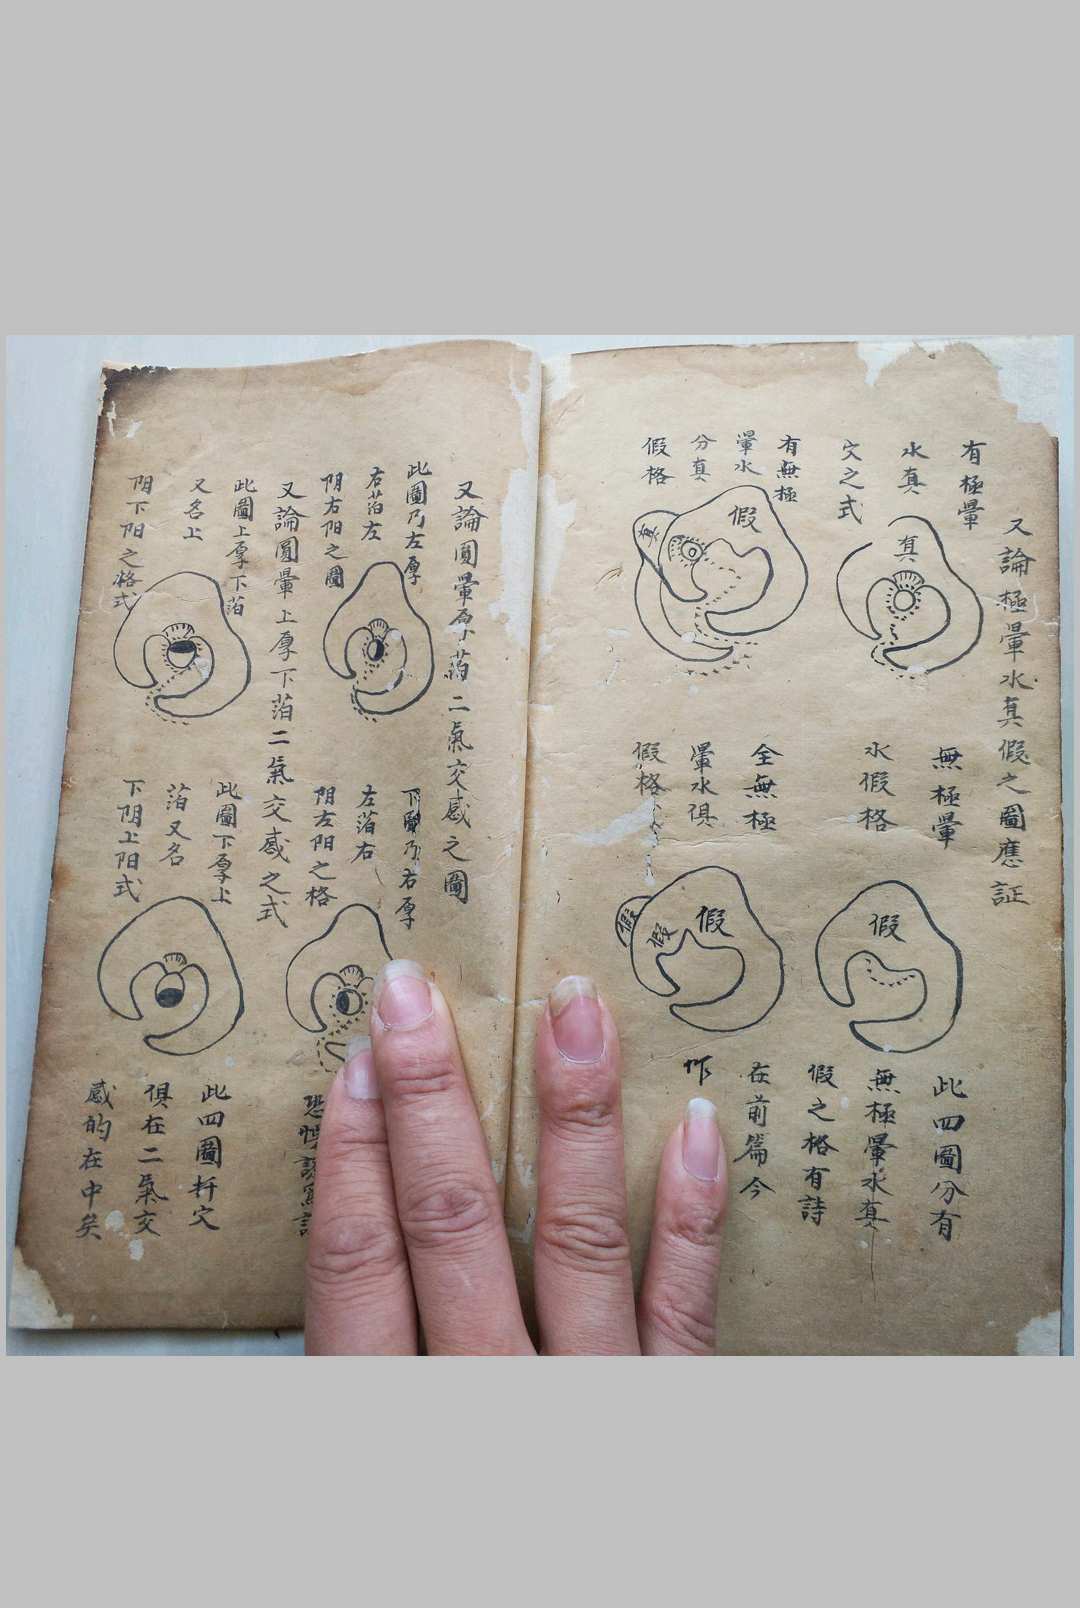 又論極暈水真假之圖應証
有極暈
水真
穴之式
真
有無極
暈水
分真
假格
假
真
無極暈
水假格
假
全無極
暈水俱
假格
假
假
假
此四圖分有
無極暈水真
假之格有詩
在前篇今
又論圓暈厚薄二氣交感之圖
此圖乃左厚
右萡左
阴右阳之圖
下圖乃右厚
左萡右
阴左阳之格
又論圓暈上厚下萡二氣交感之式
此圖上厚下萡
又名上
阴下阳之格式
此圖下厚上
萡又名
下阴上阳式
恐
此四圖扦穴
俱在二氣交
感的在中矣